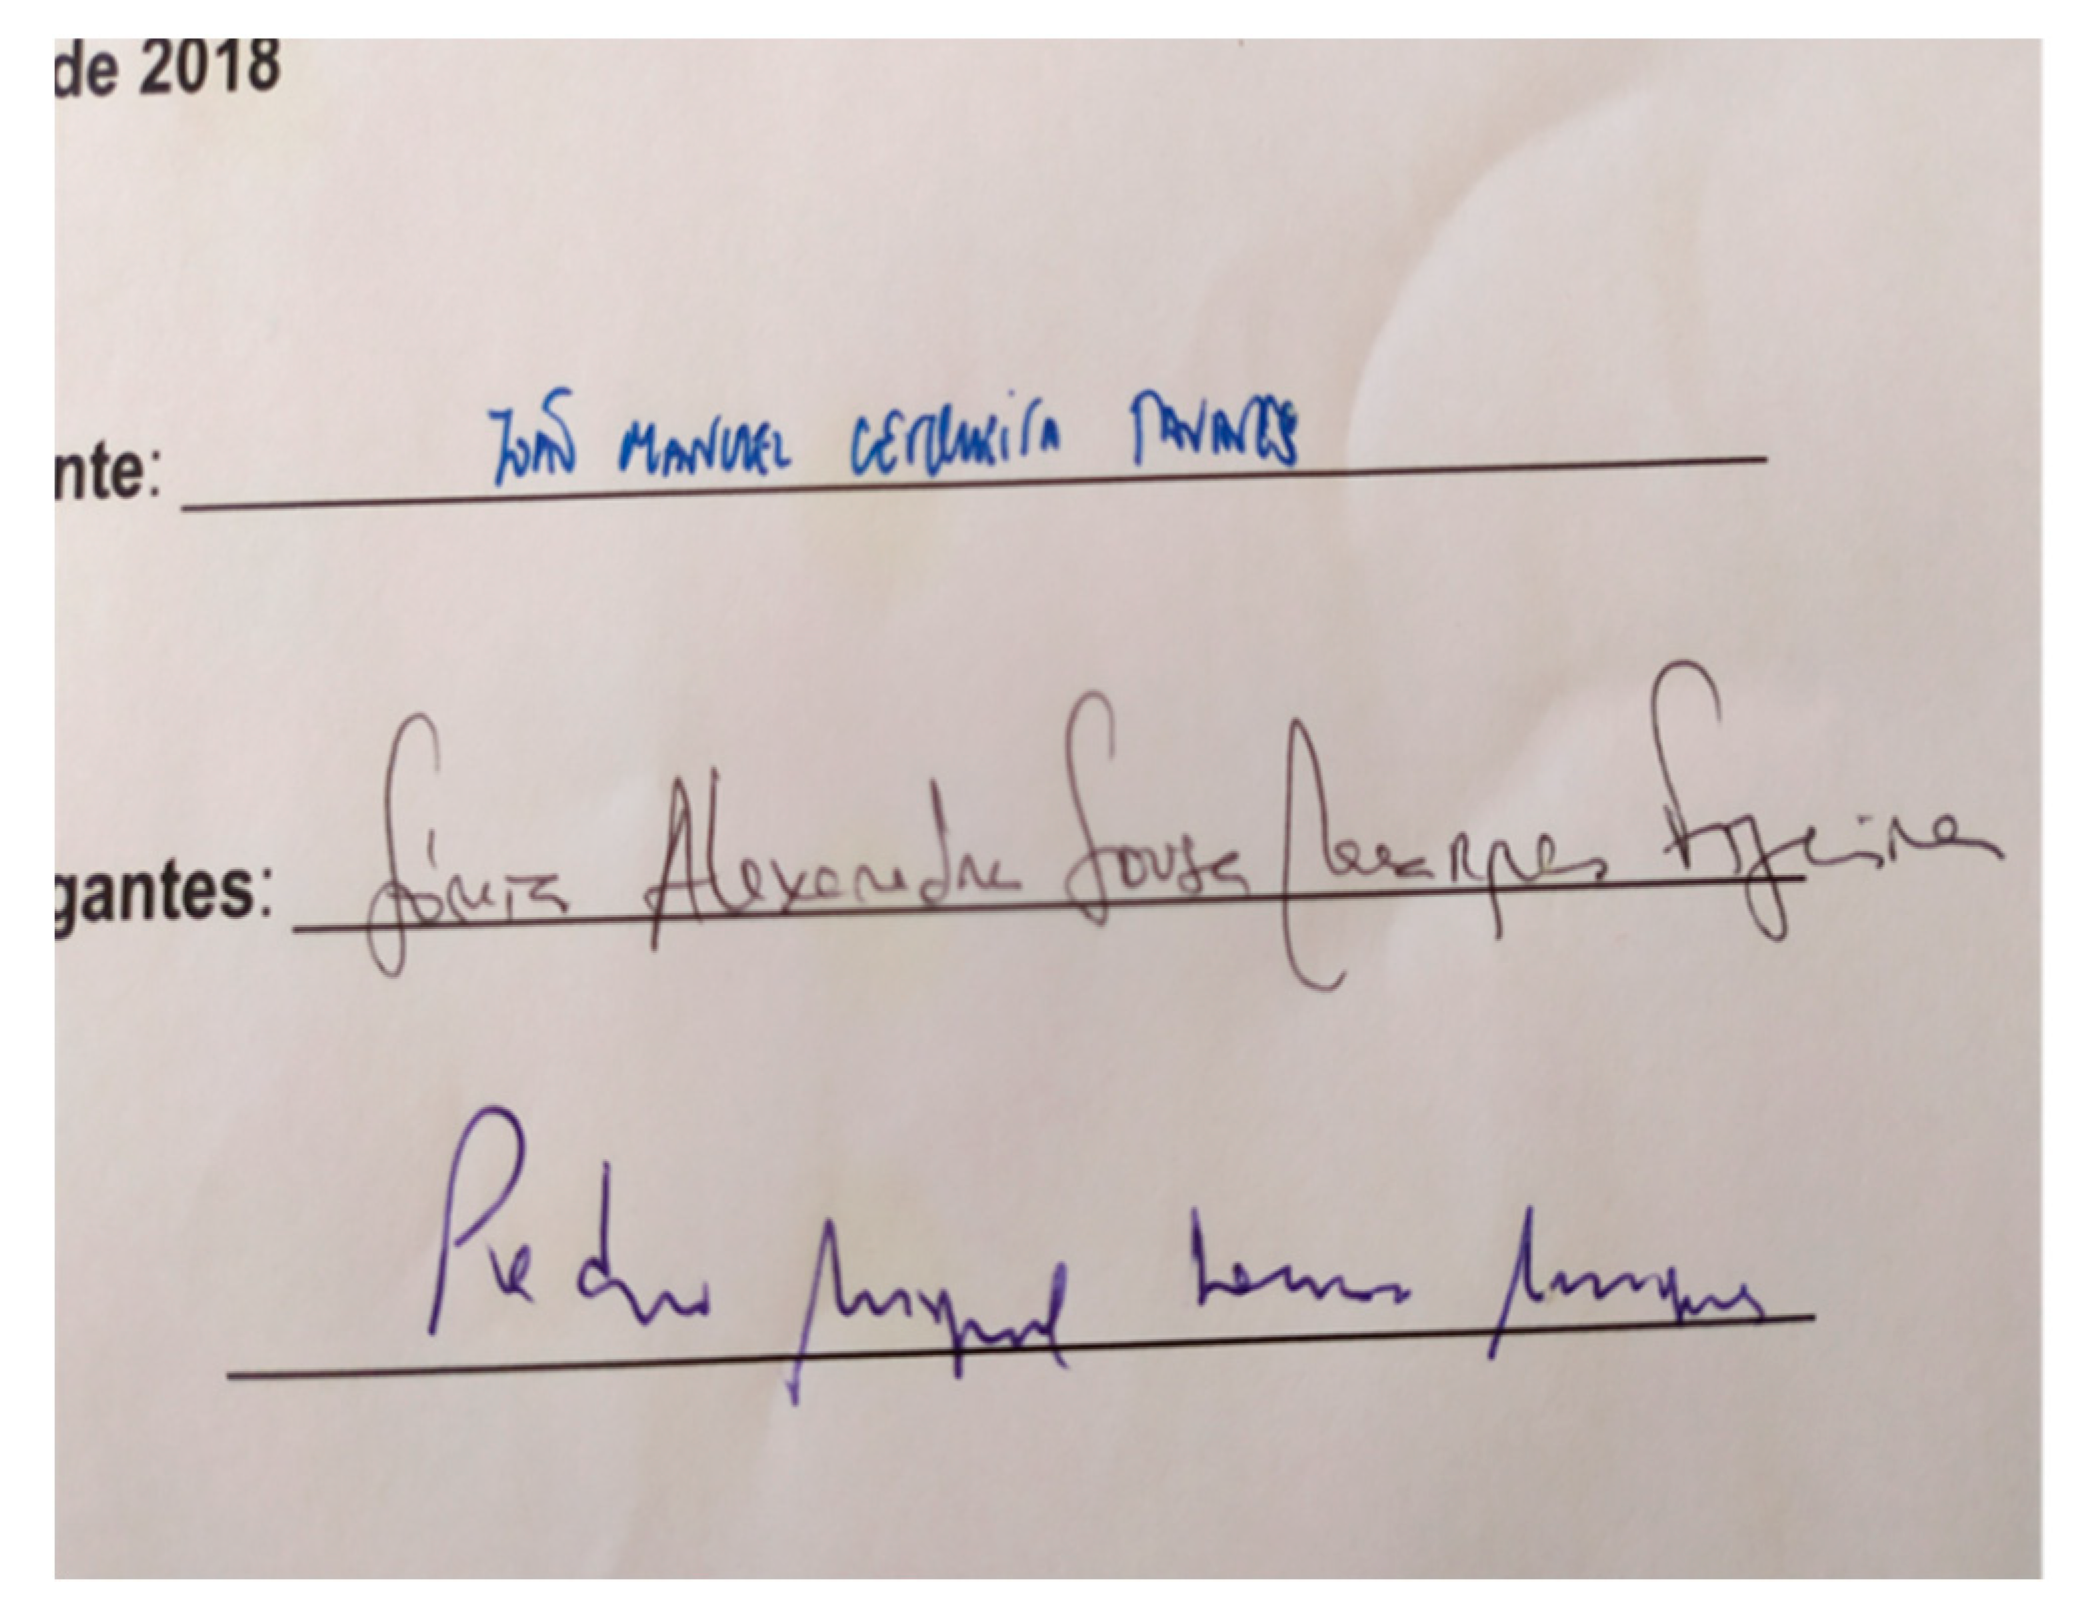 de 2018
nte: João MANUEL CERQUEIRA TAVARES
gantes: Sónia Alexandra Sousa Marques Figueira
Pedro Miguel Lemos Marques